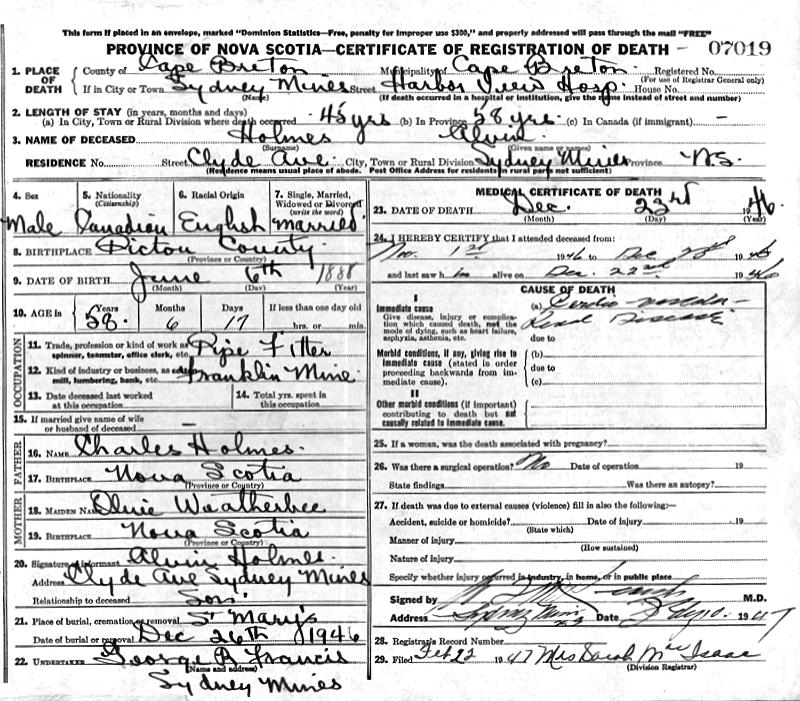 This form if placed in an envelope, marked "Dominion Statistics—Free, penalty for improper use $300," and properly addressed will pass through the mail "FREE"
PROVINCE OF NOVA SCOTIA—CERTIFICATE OF REGISTRATION OF DEATH - 07019
1. PLACE OF DEATH County of Cape Breton Municipality of Cape Breton Registered No.
(For use of Registrar General only)
If in City or Town Sydney Mines Street Harbor View Hosp. House No.
(Name) (If death occurred in a hospital or institution, give the name instead of street and number)
2. LENGTH OF STAY (in years, months and days)
(a) In City, Town or Rural Division where death occurred 45 yrs (b) In Province 58 yrs. (c) In Canada (if immigrant) —
3. NAME OF DECEASED Holmes Alvin
(Surname) (Given name or names)
RESIDENCE No. Street Clyde Ave City, Town or Rural Division Sydney Mines Province N.S.
(Residence means usual place of abode. Post Office Address for residents in rural part not sufficient)
4. Sex 5. Nationality (Citizenship) 6. Racial Origin 7. Single, Married, Widowed or Divorced (write the word)
Male Canadian English Married
8. BIRTHPLACE Pictou County
(Province or Country)
9. DATE OF BIRTH June 6th 1888
(Month) (Day) (Year)
10. AGE in Years Months Days If less than one day old
58 6 17 hrs. or min.
OCCUPATION
11. Trade, profession or kind of work as spinner, teamster, office clerk, etc. Pipe Fitter
12. Kind of industry or business, as mill, lumbering, bank, etc. Franklin Mine
13. Date deceased last worked at this occupation 14. Total yrs. spent in this occupation
15. If married give name of wife or husband of deceased —
FATHER
16. NAME Charles Holmes.
17. BIRTHPLACE Nova Scotia
(Province or Country)
MOTHER
18. MAIDEN NAME Olive Weatherbee
19. BIRTHPLACE Nova Scotia
(Province or Country)
20. Signature of informant Alvin Holmes.
Address Clyde Ave Sydney Mines
Relationship to deceased Son.
21. Place of burial, cremation or removal St Mary's
Date of burial or removal Dec 26th 1946
22. UNDERTAKER George B Francis
(Name and address)
Sydney Mines
MEDICAL CERTIFICATE OF DEATH
23. DATE OF DEATH Dec. 23rd 1946
(Month) (Day) (Year)
24. I HEREBY CERTIFY that I attended deceased from:
Nov. 1st 1946 to Dec 1946
and last saw him alive on Dec. 22nd 1946
CAUSE OF DEATH
I
Immediate cause (a)
Give disease, injury or complication which caused death, not the mode of dying, such as heart failure, asphyxia, asthenia, etc. Disease
due to
Morbid conditions, if any, giving rise to immediate cause (stated in order proceeding backwards from immediate cause). (b)
due to
(c)
II
Other morbid conditions (if important) contributing to death but not causally related to immediate cause.
25. If a woman, was the death associated with pregnancy?
26. Was there a surgical operation? No Date of operation 19
State findings Was there an autopsy?
27. If death was due to external causes (violence) fill in also the following:—
Accident, suicide or homicide? Date of injury 19
(State which)
Manner of injury
(How sustained)
Nature of injury
Specify whether injury occurred in industry, in home, or in public place
Signed by M.D.
Address Sydney Mines Date 1947
28. Registrar's Record Number
29. Filed Feb 22 1947 Mrs Sarah MacIsaac
(Division Registrar)